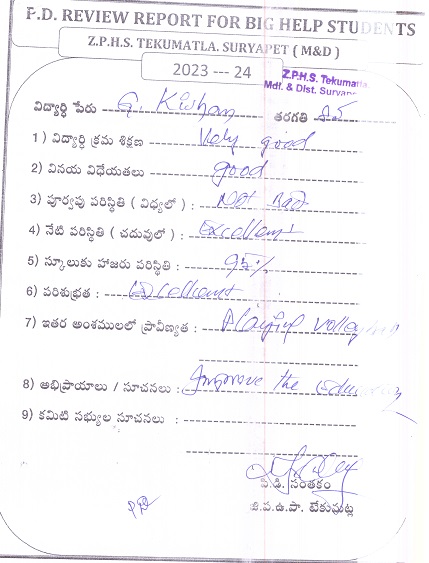 P.D. REVIEW REPORT FOR BIG HELP STUDENTS
Z.P.H.S. TEKUMATLA. SURYAPET ( M&D )
2023 --- 24
Z.P.H.S. Tekumatla
Mdl. & Dist. Suryapet
విద్యార్థి పేరు G. Kisham తరగతి
1 ) విద్యార్థి క్రమ శిక్షణ Very good
2) వినయ విధేయతలు good
3) పూర్వపు పరిస్థితి ( విధ్యలో ) : Not Bad
4) నేటి పరిస్థితి ( చదువులో ) : Excellent
5) స్కూలుకు హాజరు పరిస్థితి : 95%
6) పరిశుభ్రత : Excellent
7) ఇతర అంశములలో ప్రావీణ్యత : Playing volley
8) అభిప్రాయాలు / సూచనలు : Improve the
9) కమిటి సభ్యుల సూచనలు :
పి.డి. సంతకం
జి.ప.ఉ.పా. టేకుమట్ల